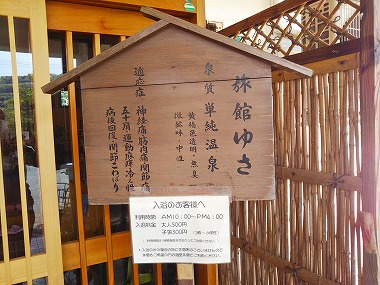 旅館ゆさ
泉質 単純温泉
黄褐色透明・無臭
微鹹味・中性
適応症 神経痛筋肉痛関節痛
五十肩 運動麻痺 冷え性
病後回復 関節こわばり
入浴のお客様へ
利用時間 AM10:00~PM4:00
入浴料金 大人500円
子供300円